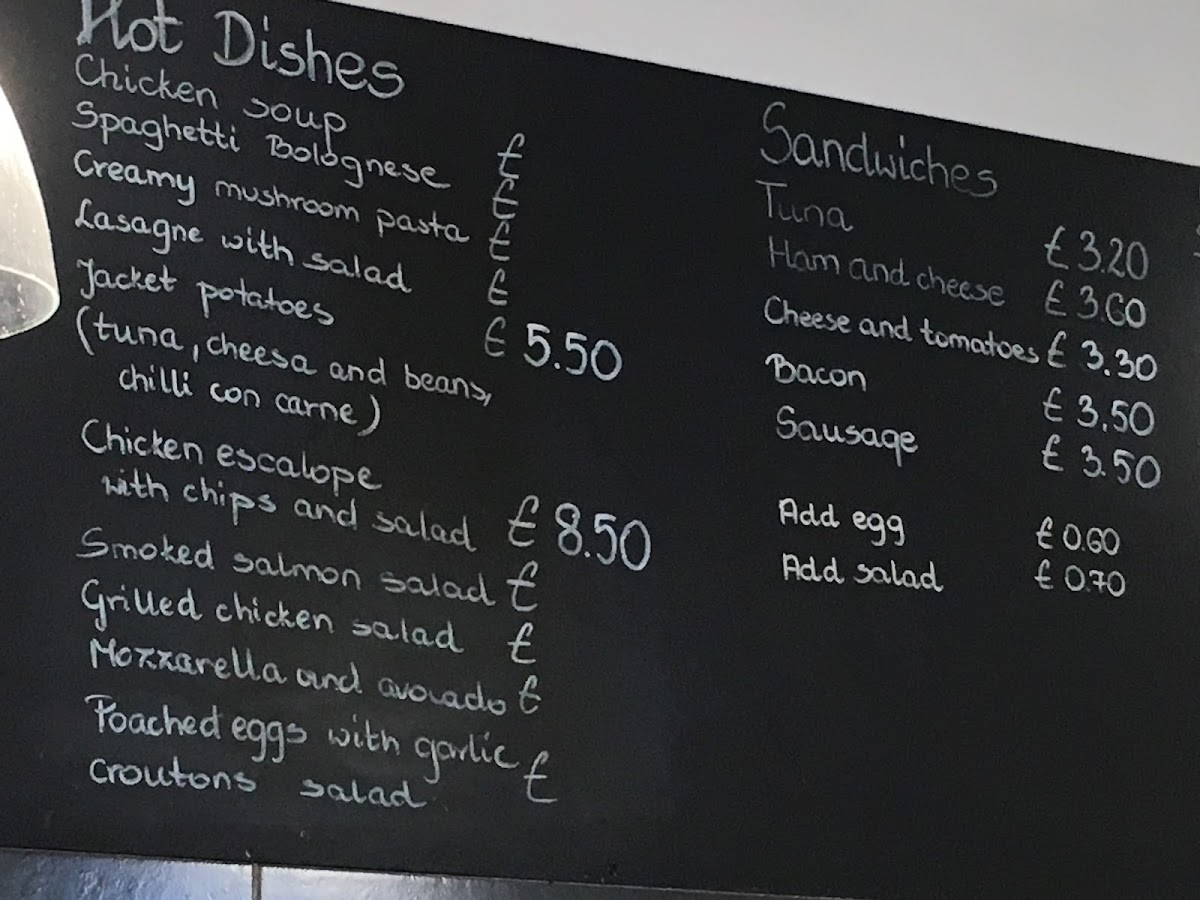 Hot Dishes
Chicken soup £
Spaghetti Bolognese £
Creamy mushroom pasta £
Lasagne with salad £
Jacket potatoes £ 5.50
(tuna, cheesa and beans,
chilli con carne)
Chicken escalope
with chips and salad £ 8.50
Smoked salmon salad £
Grilled chicken salad £
Mozzarella and avocado £
Poached eggs with garlic £
croutons salad
Sandwiches
Tuna £ 3.20
Ham and cheese £ 3.60
Cheese and tomatoes £ 3.30
Bacon £ 3.50
Sausage £ 3.50
Add egg £ 0.60
Add salad £ 0.70